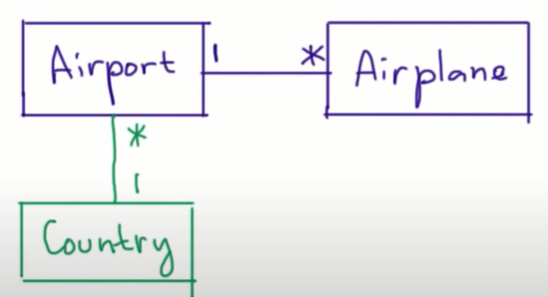 Airport 1 * Airplane
*
1
Country